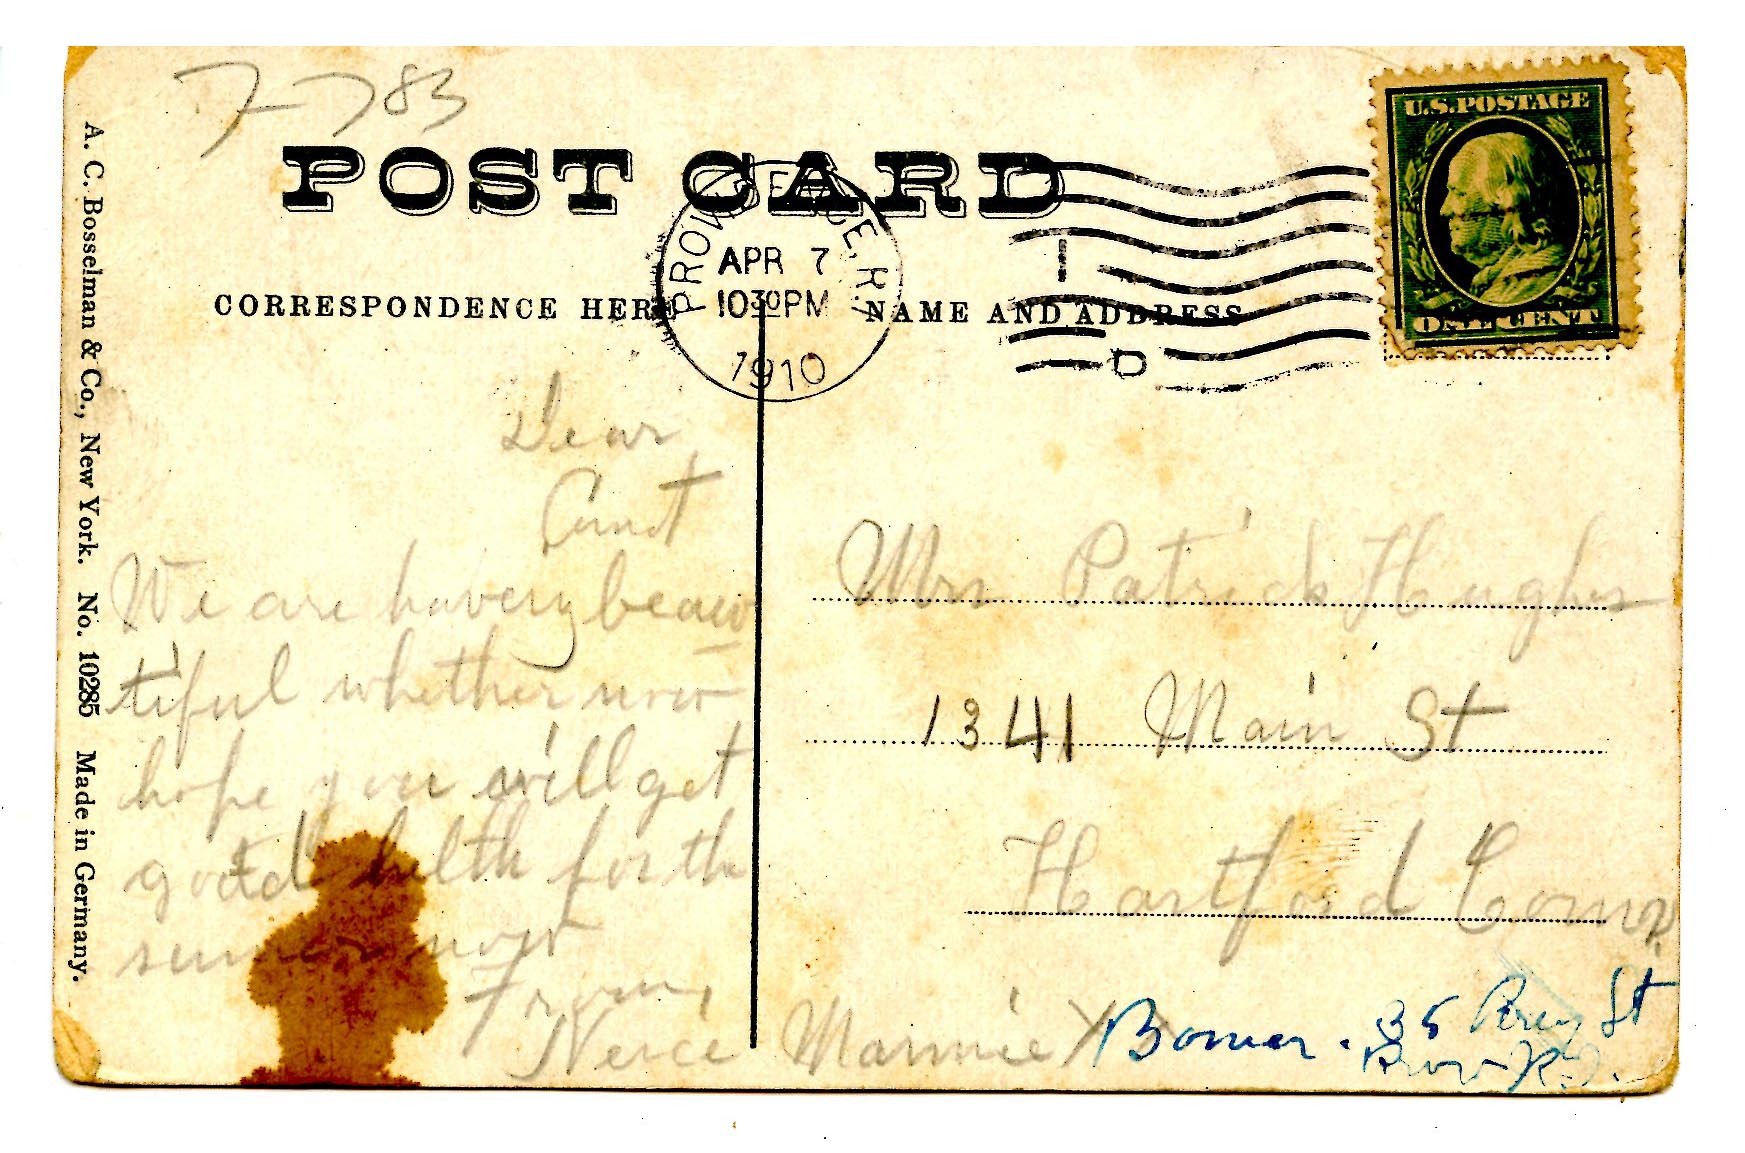 7-783
POST CARD
PROVIDENCE, R.I.
APR 7
1030PM
1910
I
D
U.S. POSTAGE
ONE CENT
CORRESPONDENCE HERE
NAME AND ADDRESS
A. C. Bosselman & Co., New York. No. 10285 Made in Germany.
Dear
Aunt
We are havery beau
tiful whether now
hope you will get
good helth for the
now
From,
Neice Mammie X
Mrs Patrick Hughes
1341 Main St
Hartford Conn.
35 Percy St
Prov R.I.